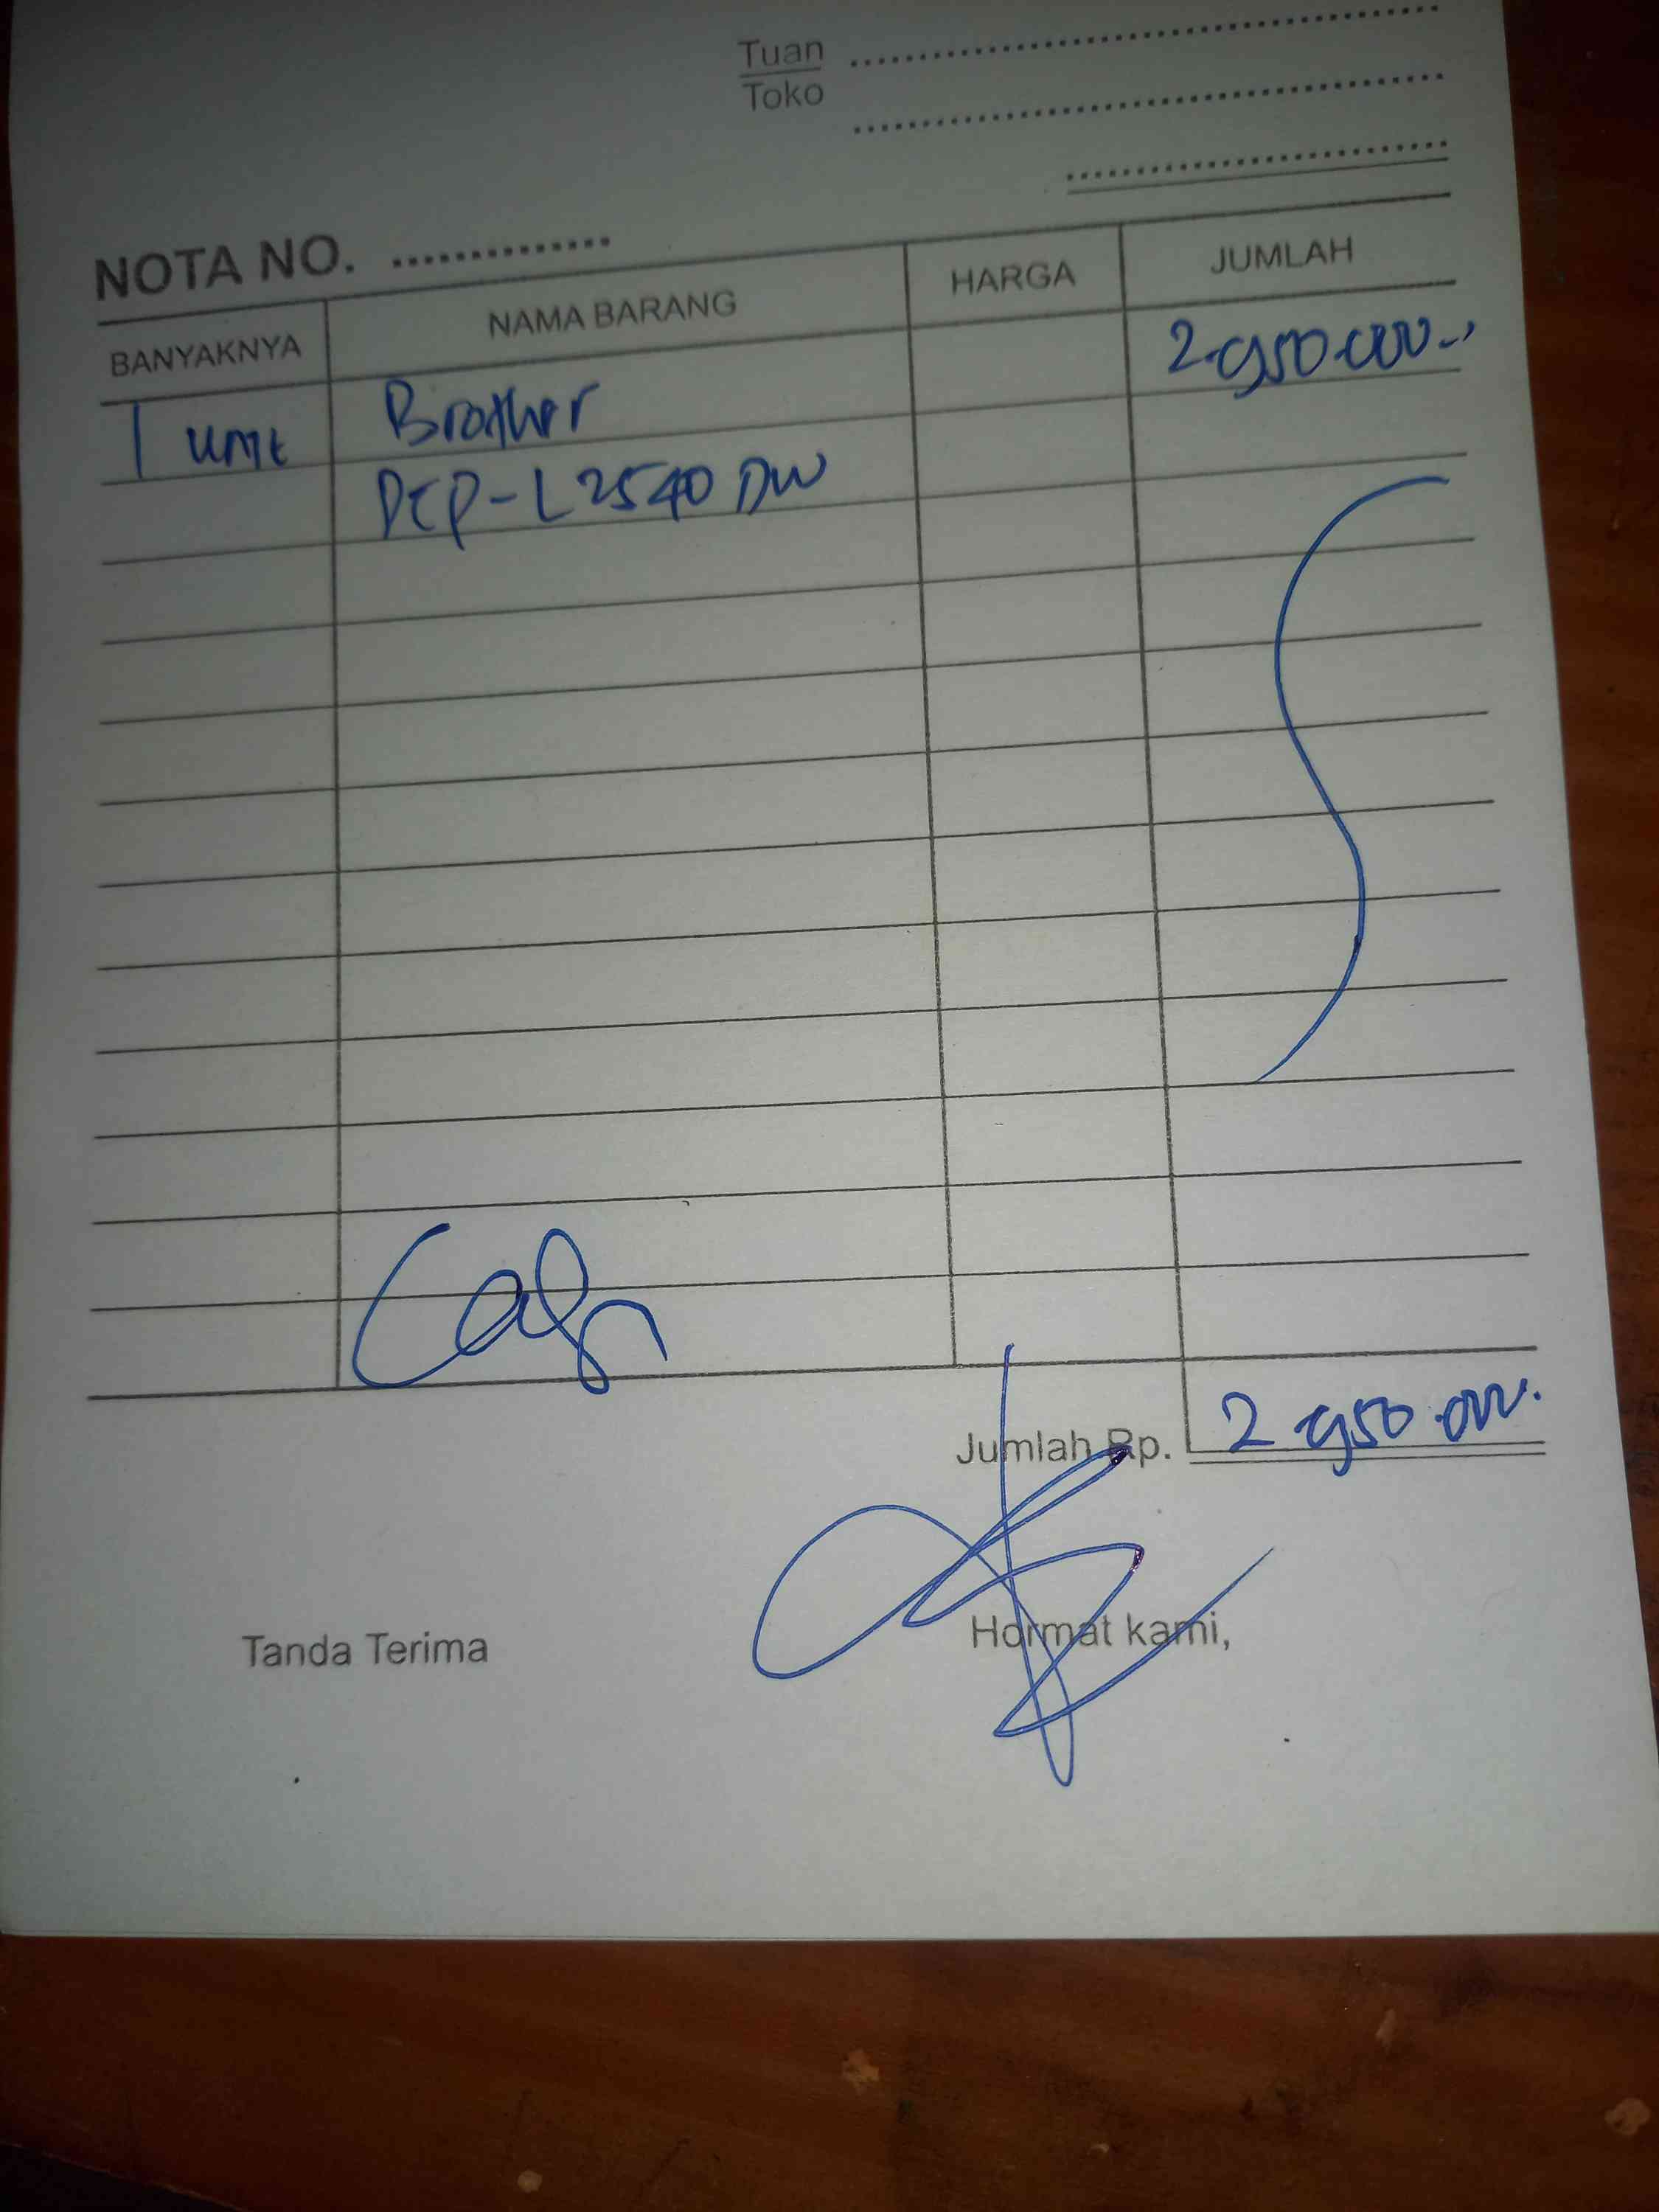 Tuan
Toko
NOTA NO. ..............
BANYAKNYA NAMA BARANG HARGA JUMLAH
1 unit Brother 2.950.000.-,
DCP-L2540 DW
Jumlah Rp. 2 950.000.
Tanda Terima Hormat kami,